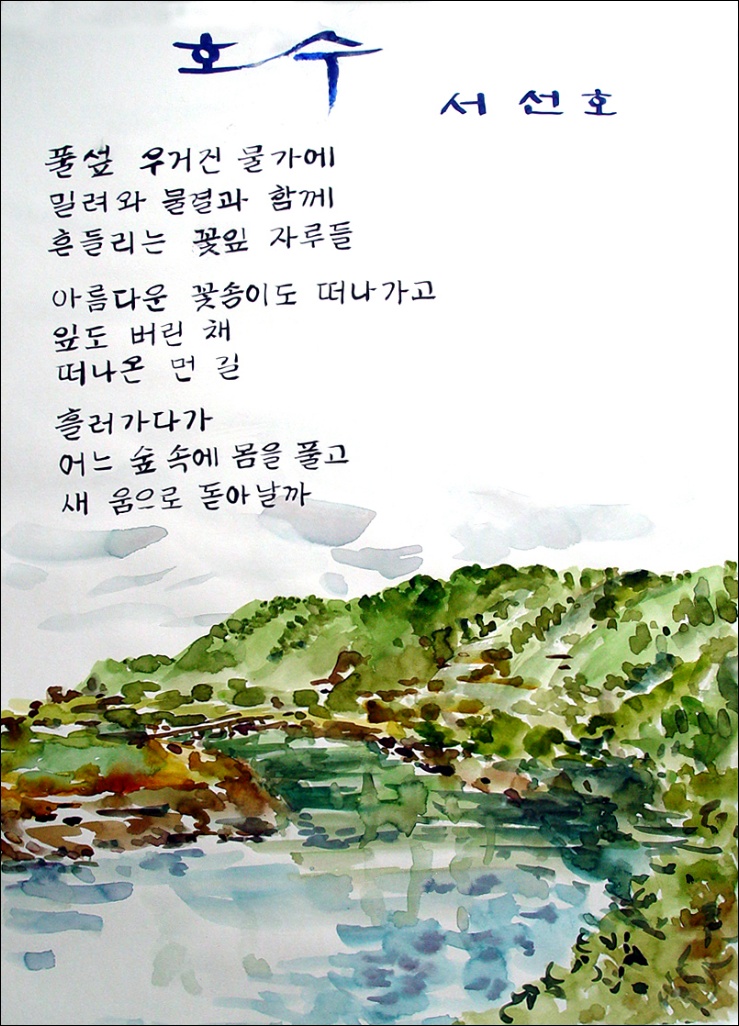 호수
서선호
풀섶 우거진 물가에
밀려와 물결과 함께
흔들리는 꽃잎 자루들
아름다운 꽃송이도 떠나가고
잎도 버린 채
떠나온 먼 길
흘러가다가
어느 숲 속에 몸을 풀고
새 움으로 돋아날까